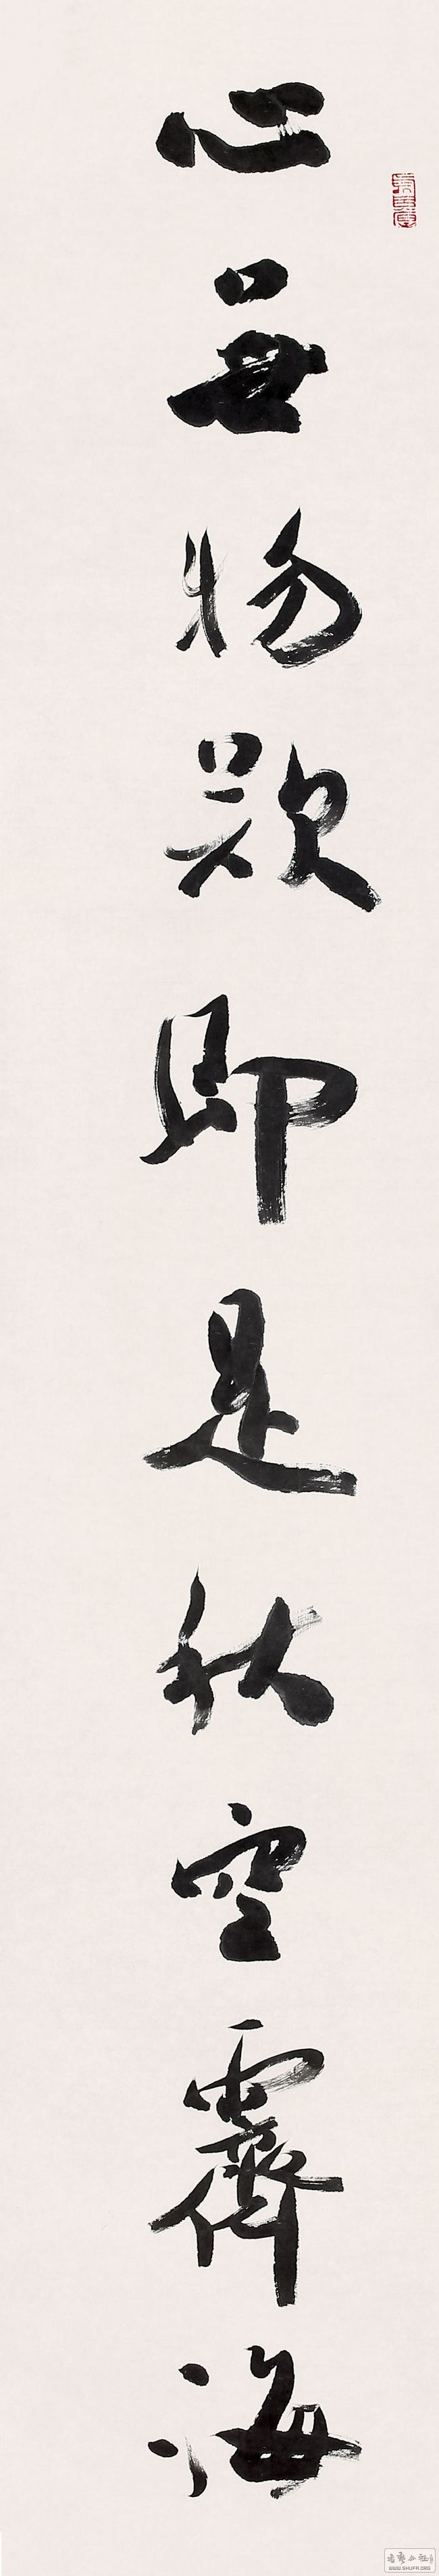 心無物欲即是秋空霽海
WWW.SHUFR.ORG